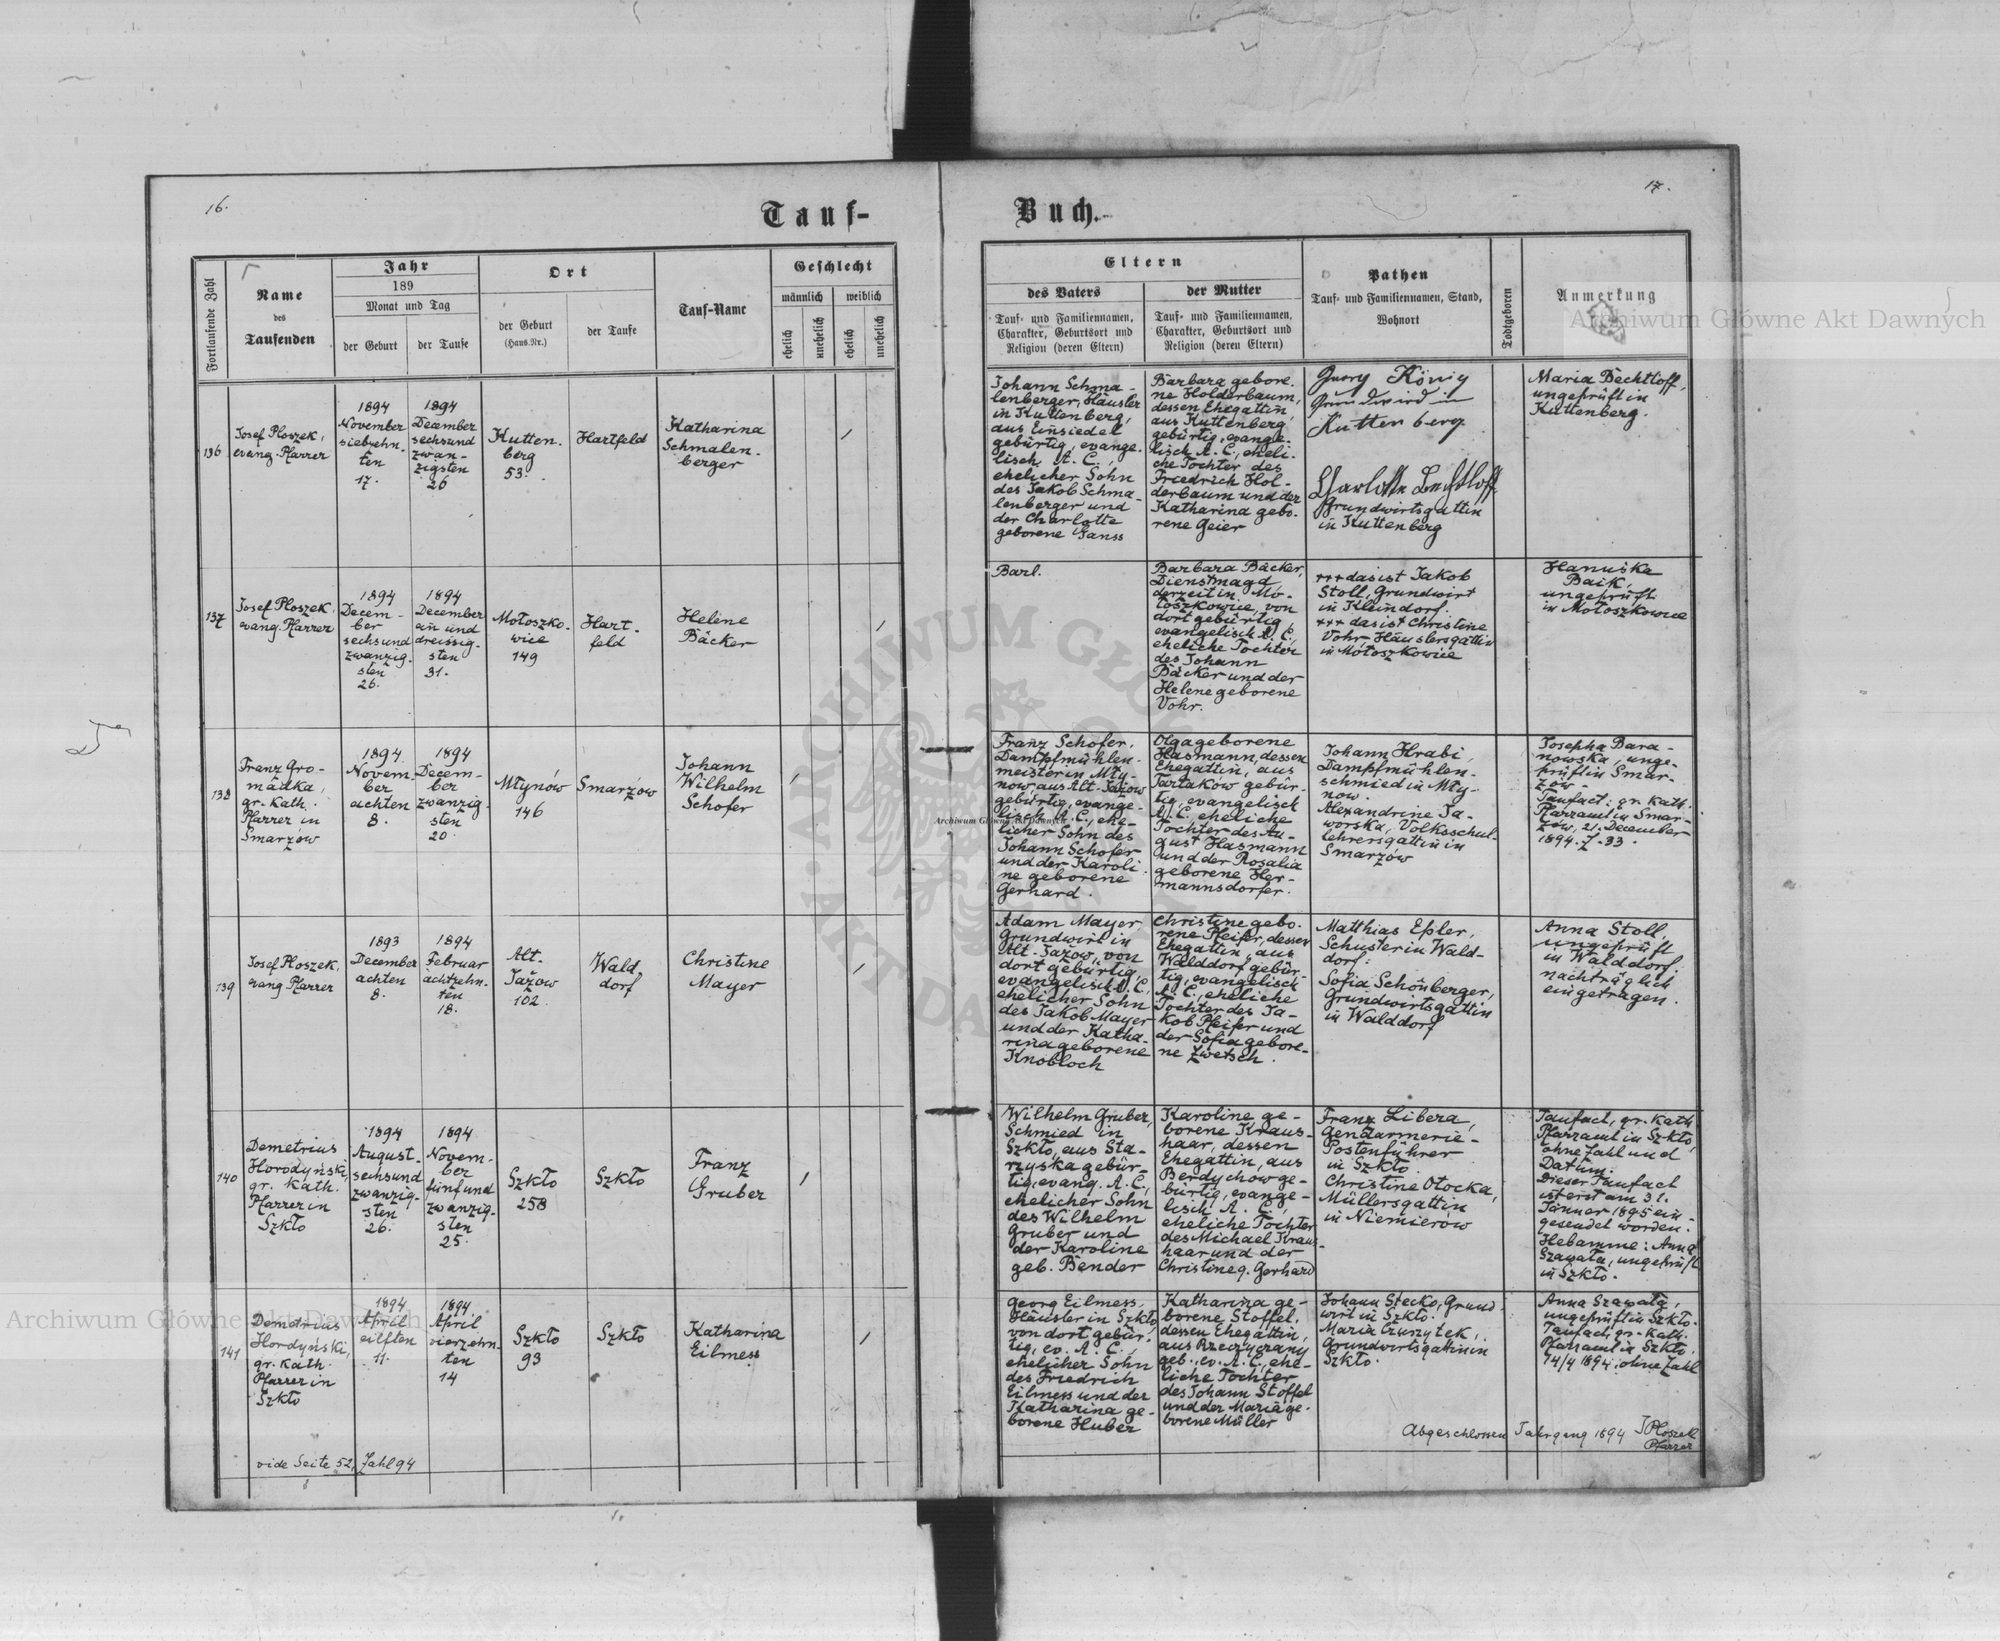 16.
17.
Tauf-
Buch.
Fortlaufende Zahl
Name
des
Taufenden
Jahr
189
Monat und Tag
der Geburt
der Taufe
Ort
der Geburt
(Haus-Nr.)
der Taufe
Tauf-Name
Geschlecht
männlich
weiblich
ehelich
unehelich
ehelich
unehelich
Eltern
des Vaters
Tauf- und Familiennamen,
Charakter, Geburtsort und
Religion (deren Eltern)
der Mutter
Tauf- und Familiennamen,
Charakter, Geburtsort und
Religion (deren Eltern)
Pathen
Tauf- und Familiennamen, Stand,
Wohnort
Todtgeboren
Anmerkung
136
Josef Ploszek,
evang. Pfarrer
1894
November
siebzehn-
ten
17.
1894
December
sechsund
zwan-
zigsten
26
Kutten-
berg
53.
Hartfeld
Katharina
Schmalen-
berger
/
Johann Schma-
lenberger, Häusler
in Kuttenberg,
aus Einsiedel
gebürtig, evange-
lisch, A. C.,
ehelicher Sohn
des Jakob Schma-
lenberger und
der Charlotte
geborene Ganss
Barbara gebore-
ne Holderbaum,
dessen Ehegattin,
aus Kuttenberg
gebürtig, evange-
lisch A. C., eheli-
che Tochter des
Friedrich Hol-
derbaum und der
Katharina gebo-
rene Geier
Georg König
Grundwirt in
Kuttenberg
Charlotte Bechtloff
Grundwirtsgattin
in Kuttenberg
Maria Bechtloff,
ungeprüft in
Kuttenberg.
137
Josef Ploszek,
evang. Pfarrer
1894
Decem-
ber
sechsund
zwanzig-
sten
26.
1894
December
ein und
dreissig-
sten
31.
Mołoszko-
wice
149
Hart-
feld
Helene
Bäcker
/
Barl.
Barbara Bäcker,
Dienstmagd
derzeit in Mo-
łoszkowice, von
dort gebürtig,
evangelisch A. C.,
eheliche Tochter
des Johann
Bäcker und der
Helene geborene
Vohr.
+++ das ist Jakob
Stoll, Grundwirt
in Kleindorf.
+++ das ist Christine
Vohr, Häuslersgattin
in Mołoszkowice
Hanuśka
Baik,
ungeprüft
in Mołoszkowice
138
Franz Gro-
madka,
gr. Kath.
Pfarrer in
Smarzów
1894
Novem-
ber
achten
8.
1894
Decem-
ber
zwanzig-
sten
20.
Młynów
146
Smarzów
Johann
Wilhelm
Schofer
/
Franz Schofer,
Dampfmühlen-
meister in Mły-
now, aus Alt-Jażow
gebürtig, evange-
lisch, A. C., ehe-
licher Sohn des
Johann Schofer
und der Karoli-
ne geborene
Gerhard.
Olga geborene
Hasmann, dessen
Ehegattin, aus
Tartaków gebür-
tig, evangelisch
A. C., eheliche
Tochter des Au-
gust Hasmann
und der Rosalia
geborene Her-
mannsdorfer.
Johann Hrabi,
Dampfmühlen-
schmied in Mły-
now.
Alexandrine Ja-
worska, Volksschul-
lehrersgattin in
Smarzów
Josepha Bara-
nowska, unge-
prüft in Smar-
zów-
Taufact: gr. Kath.
Pfarramt in Smar-
zów, 21. December
1894. Z. 33.
139
Josef Ploszek,
evang. Pfarrer
1893
December
achten
8.
1894
Februar
achtzehn-
ten
18.
Alt-
Jażow
102
Wald-
dorf
Christine
Mayer
/
Adam Mayer
Grundwirt in
Alt-Jażow, von
dort gebürtig,
evangelisch A. C.
ehelicher Sohn
des Jakob Mayer
und der Katha-
rina geborene
Knobloch
Christine gebo-
rene Pfeifer, dessen
Ehegattin, aus
Walddorf gebür-
tig, evangelisch
A. C., eheliche
Tochter des Ja-
kob Pfeifer und
der Sofia gebore-
ne Zwetsch.
Matthias Eßler,
Schuster in Wald-
dorf.
Sofia Schönberger,
Grundwirtsgattin
in Walddorf
Anna Stoll,
ungeprüft
in Walddorf.
nachträglich
eingetragen.
140
Demetrius
Horodyński,
gr. Kath.
Pfarrer in
Szkło
1894
August
sechsund
zwanzig-
sten
26.
1894
Novem-
ber
fünfund
zwanzig-
sten
25.
Szkło
258
Szkło
Franz
Gruber
/
Wilhelm Gruber,
Schmied in
Szkło, aus Sta-
rzyska gebür-
tig, evang. A. C.,
ehelicher Sohn
des Wilhelm
Gruber und
der Karoline
geb. Bender
Karoline ge-
borene Kraus-
haar, dessen
Ehegattin, aus
Berdychow ge-
bürtig, evange-
lisch A. C.,
eheliche Tochter
des Michael Kraus-
haar und der
Christine g. Gerhard
Franz Libera,
Gendarmerie-
Postenführer
in Szkło.
Christine Otocka,
Müllersgattin
in Niemierów
Taufact, gr. Kath
Pfarramt in Szkło,
ohne Zahl und
Datum.
Dieser Taufact
ist erst am 31.
Jänner 1895 ein-
gesendet worden.
Hebamme: Anna
Szawała, ungeprüft
in Szkło.
141
Demetrius
Hordyński,
gr. Kath.
Pfarrer in
Szkło
1894
April
eilften
11.
1894
April
vierzehn-
ten
14
Szkło
93
Szkło
Katharina
Eilmess
/
Georg Eilmess,
Häusler in Szkło
von dort gebür-
tig, ev. A. C.,
ehelicher Sohn
des Friedrich
Eilmess und der
Katharina ge-
borene Huber
Katharina ge-
borene Stoffel,
dessen Ehegattin,
aus
geb., ev. A. C., ehe-
liche Tochter
des Johann Stoffel
und der Maria ge-
borene Müller
Johann Stecko, Grund-
wirt in Szkło.
Maria
Grundwirtsgattin in
Szkło.
Anna Szawała,
ungeprüft in Szkło.
Taufact, gr. Kath.
Pfarramt in Szkło.
14/4 1894. ohne Zahl
vide Seite 52, Zahl 94
Abgeschlossen Jahrgang 1894 JPloszek
Pfarrer
Archiwum Główne Akt Dawnych
Archiwum Główne Akt Dawnych
Archiwum Główne Akt Dawnych
ARCHIWUM GŁÓWNE AKT DAWNYCH